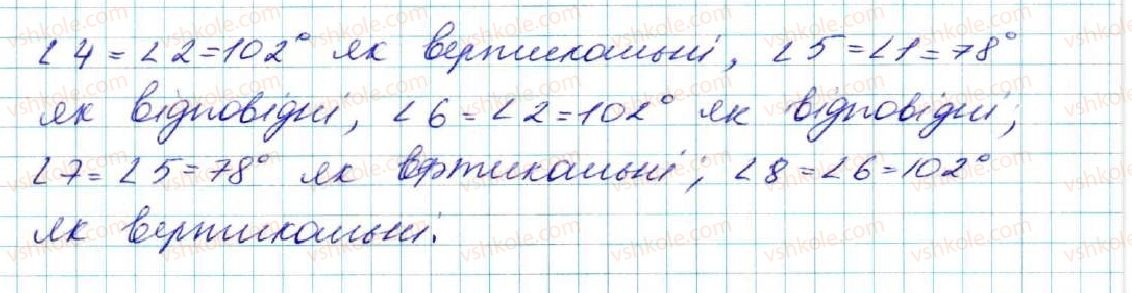 ∠4 = ∠2 = 102° як вертикальні, ∠5 = ∠1 = 78°
як відповідні, ∠6 = ∠2 = 102° як відповідні;
∠7 = ∠5 = 78° як вертикальні; ∠8 = ∠6 = 102°
як вертикальні.
vshkole.com